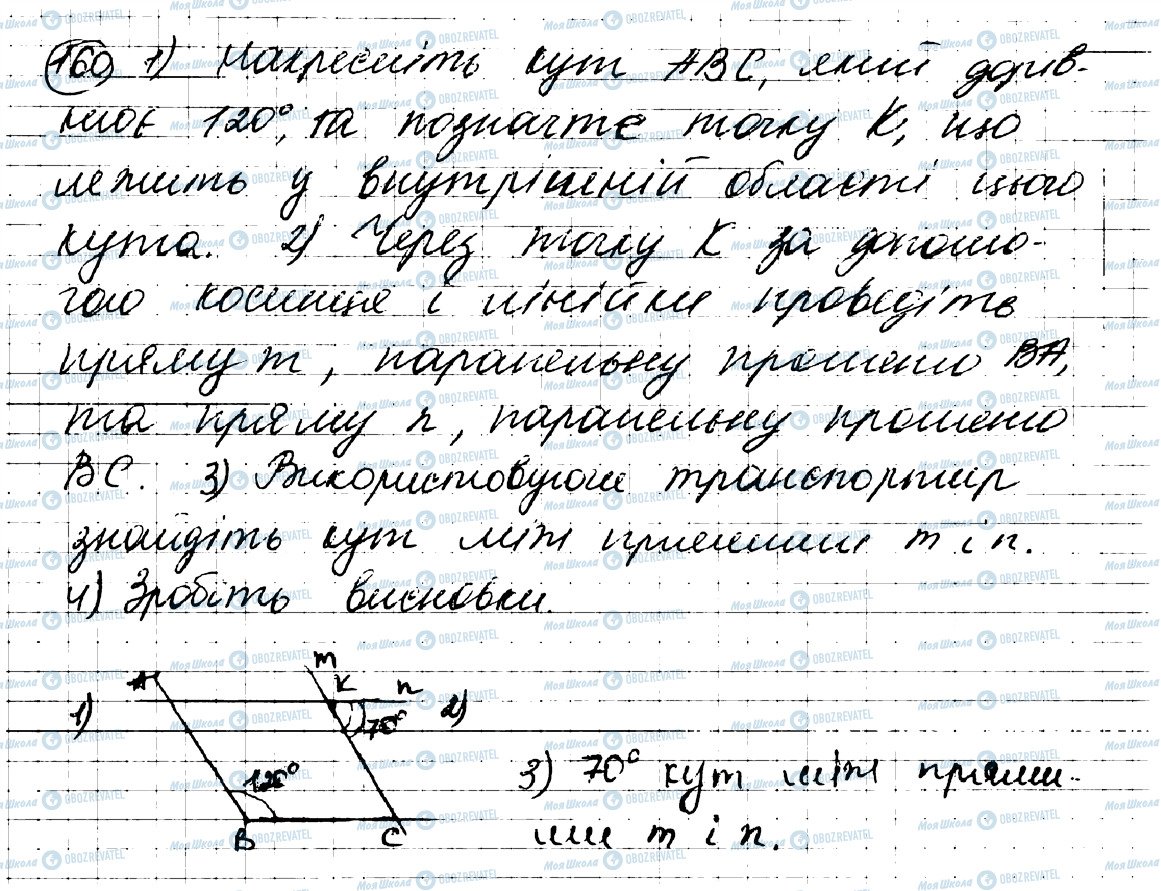 160 1) Накресліть кут ABC, який дорів-
нює 120°, та позначте точку K, що
лежить у внутрішній області цього
кута. 2) Через точку K за допомо-
гою косинця і лінійки проведіть
пряму m, паралельну променю BA,
та пряму n, паралельну променю
BC. 3) Використовуючи транспортир
знайдіть кут між прямими m і n.
4) Зробіть висновки.
m
A K n
1) 70° 2)
120° 3) 70° кут між прями-
B C ми m і n.